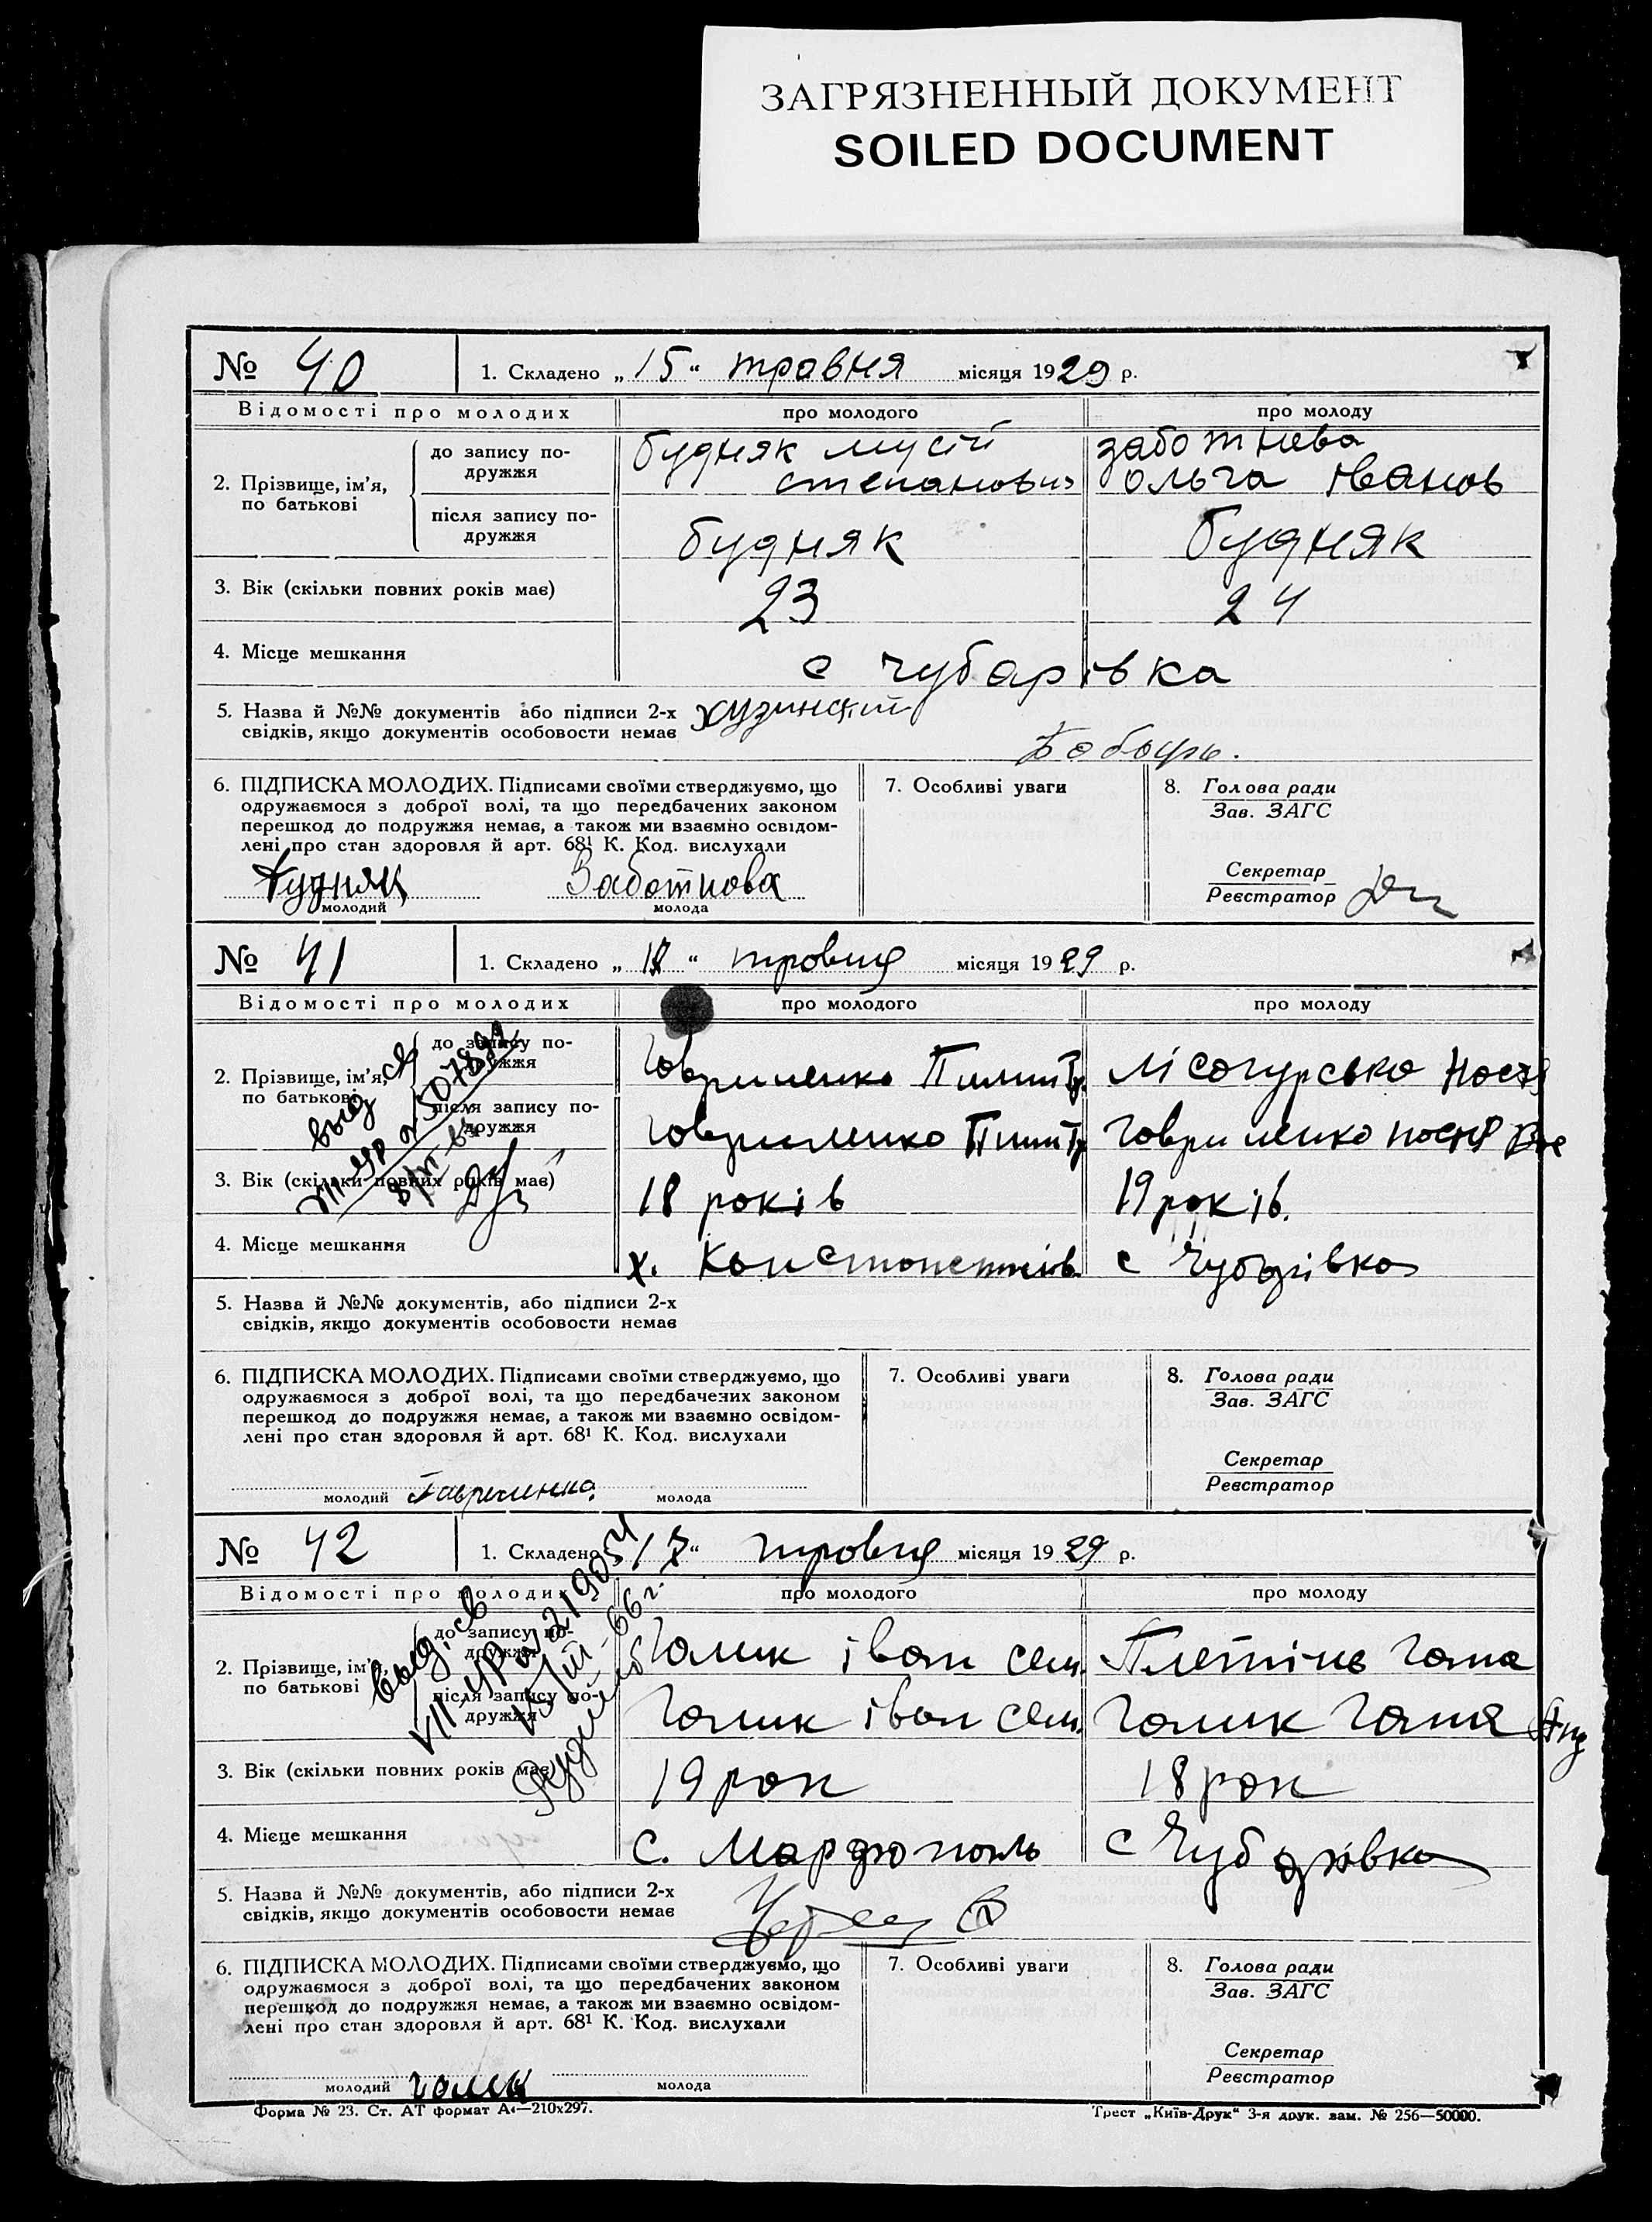 ЗАГРЯЗНЕННЫЙ ДОКУМЕНТ
SOILED DOCUMENT
№ 40 1. Складено „ 15 “ травня місяця 1929 р.
Відомості про молодих про молодого про молоду
2. Прізвище, ім’я, по батькові
до запису по-
дружжя
будняк мусій
степанович
заботнева
ольга іванов
після запису по-
дружжя
будняк будняк
3. Вік (скільки повних років має) 23 24
4. Місце мешкання с чубарівка
5. Назва й №№ документів або підписи 2-х
свідків, якщо документів особовости немає
6. ПІДПИСКА МОЛОДИХ. Підписами своїми стверджуємо, що
одружаємося з доброї волі, та що передбачених законом
перешкод до подружжя немає, а також ми взаємно освідом-
лені про стан здоровля й арт. 68¹ К. Код. вислухали
Будняк Заботнова
молодий молода
7. Особливі уваги
8. Голова ради
Зав. ЗАГС
Секретар
Реєстратор
№ 41 1. Складено „ “ травня місяця 1929 р.
Відомості про молодих про молодого про молоду
2. Прізвище, ім’я, по батькові
до запису по-
дружжя
Гавриленко Лісогурська Настя
після запису по-
дружжя
Гавриленко Гавриленко настя
3. Вік (скільки повних років має) 18 років 19 років.
4. Місце мешкання х. Константинів. с Чубарівка
5. Назва й №№ документів, або підписи 2-х
свідків, якщо документів особовости немає
6. ПІДПИСКА МОЛОДИХ. Підписами своїми стверджуємо, що
одружаємося з доброї волі, та що передбачених законом
перешкод до подружжя немає, а також ми взаємно освідом-
лені про стан здоровля й арт. 68¹ К. Код. вислухали
молодий Гавриленко. молода
7. Особливі уваги
8. Голова ради
Зав. ЗАГС
Секретар
Реєстратор
№ 42 1. Складено „ 17 “ травня місяця 1929 р.
Відомості про молодих про молодого про молоду
выд. св
VII УР № 219054
66 г.
2. Прізвище, ім’я, по батькові
до запису по-
дружжя
Галик іван сем. Плетінь Ганна
після запису по-
дружжя
Галик іван сем. Галик Ганя
3. Вік (скільки повних років має) 19 рок 18 рок
4. Місце мешкання с. Марфополь с Чубарівка
5. Назва й №№ документів, або підписи 2-х
свідків, якщо документів особовости немає
6. ПІДПИСКА МОЛОДИХ. Підписами своїми стверджуємо, що
одружаємося з доброї волі, та що передбачених законом
перешкод до подружжя немає, а також ми взаємно освідом-
лені про стан здоровля й арт. 68¹ К. Код. вислухали
молодий галик молода
7. Особливі уваги
8. Голова ради
Зав. ЗАГС
Секретар
Реєстратор
Форма № 23. Ст. АТ формат А4—210х297.
Трест „Київ-Друк“ 3-я друк. зам. № 256—50000.